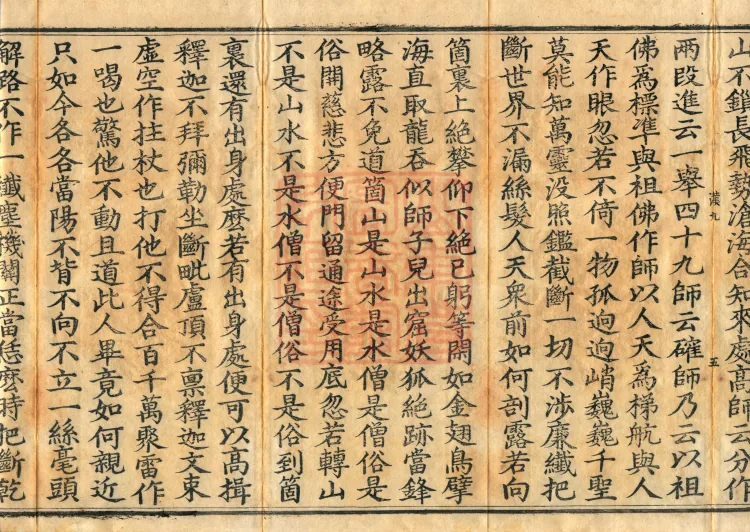 山不鎖長飛勢滄海合知來處高師云分作
兩段進云一舉四十九師云確師乃云以祖
佛為標凖與祖佛作師以人天為梯航與人
天作眼忽若不倚一物孤逈逈峭巍巍千聖
莫能知萬靈沒照鑑截斷一切不涉廉纖把
斷世界不漏絲髮人天衆前如何剖露若向
箇裏上絕攀仰下絕己躬等閑如金翅鳥擘
海直取龍吞似師子兒出窟妖狐絕跡當鋒
略露不免道箇山是山水是水僧是僧俗是
俗開慈悲方便門留通途受用底忽若轉山
不是山水不是水僧不是僧俗不是俗到箇
裏還有出身處麼若有出身處便可以高揖
釋迦不拜彌勒坐斷毗盧頂不禀釋迦文束
虛空作拄杖也打他不得合百千萬聚雷作
一喝也驚他不動且道此人畢竟如何親近
只如今各各當陽不背不向不立一絲毫頭
解路不作一纖塵機關正當恁麼時把斷乾